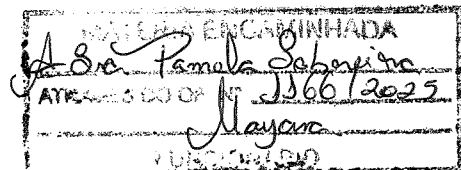 MATÉRIA ENCAMINHADA
A Sra Pamela
ATRAVÉS DO OF Nº 1166/2025
Mayara
FUNCIONÁRIO